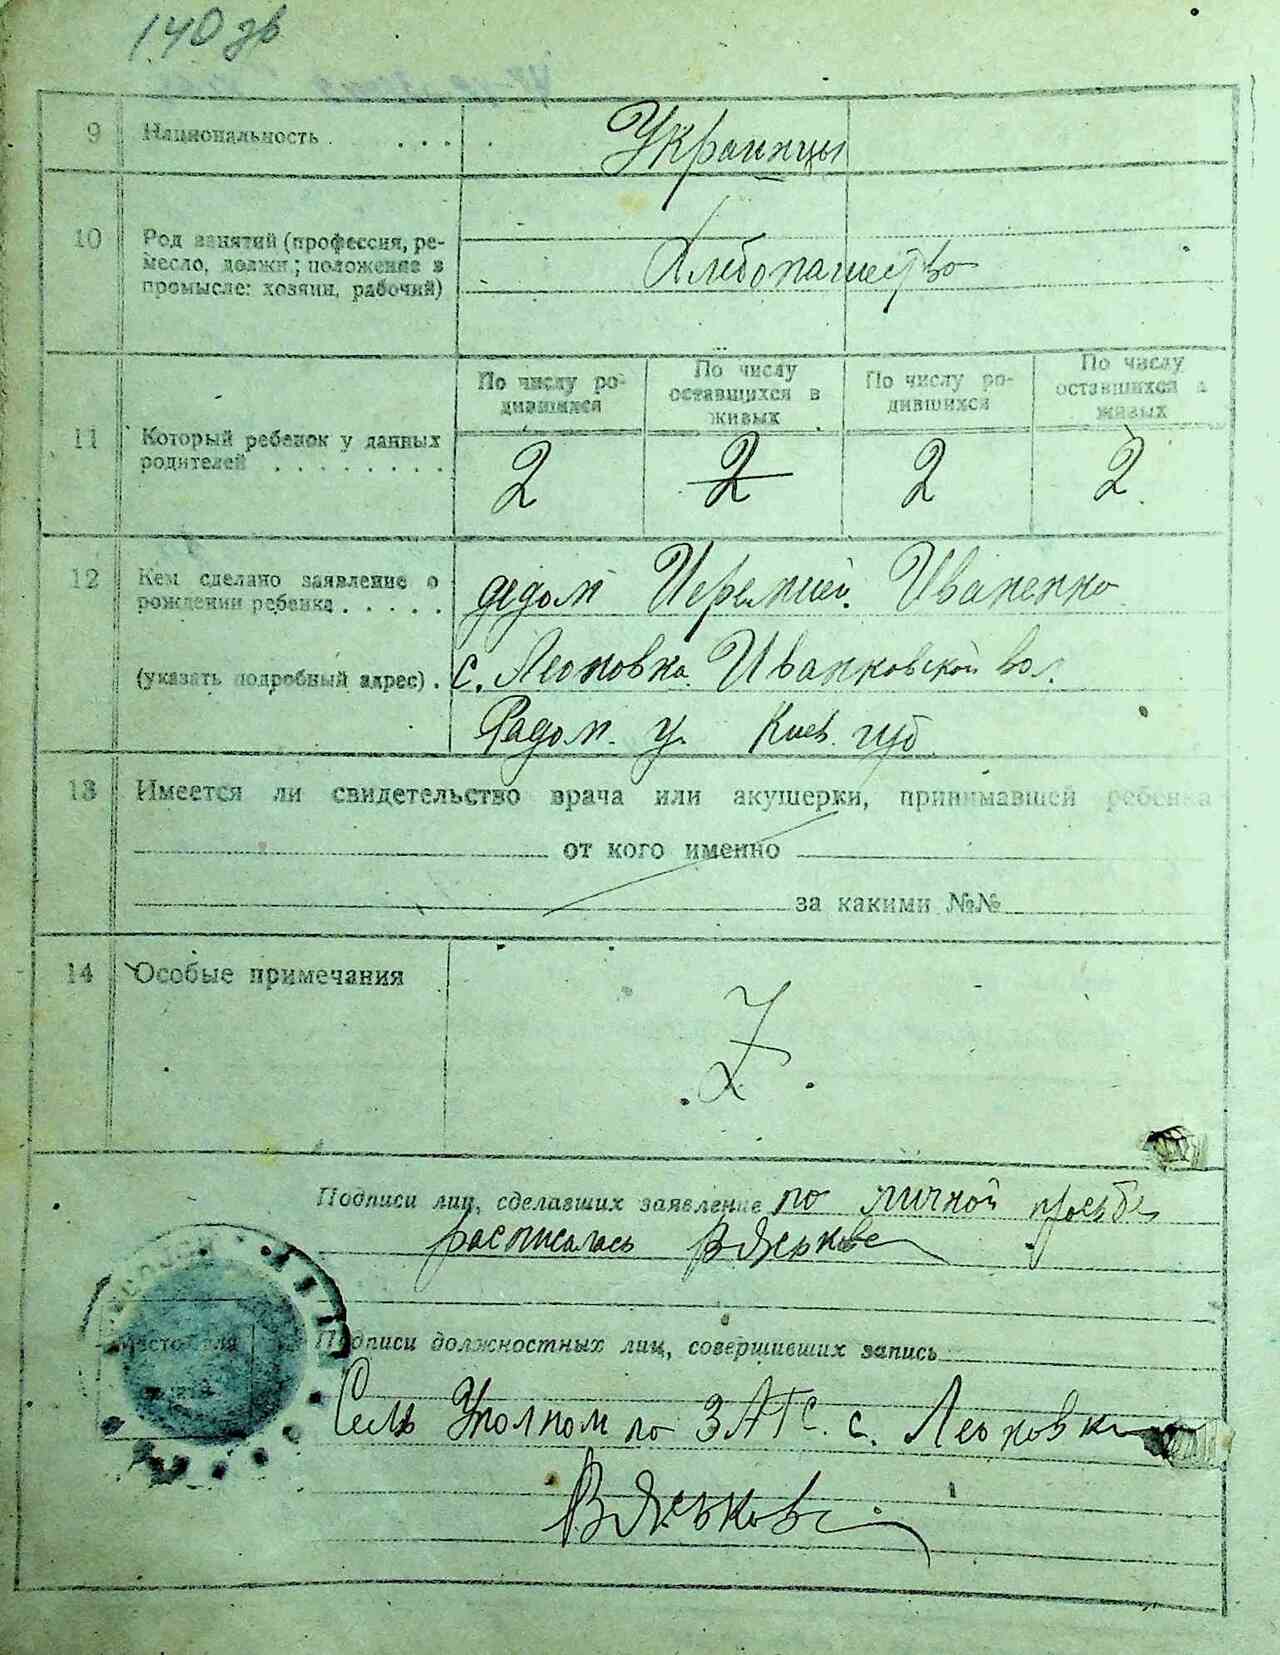 140 зв
9 Национальность . . . . . Украинцы
10 Род занятий (профессия, ре-
месло, должн.; положение в
промысле: хозяин, рабочий)
Хлебопашество
По числу ро-
дившихся
По числу
оставшихся в
живых
По числу ро-
дившихся
По числу
оставшихся в
живых
11 Который ребенок у данных
родителей . . . . . . . .
2 2 2 2
12 Кем сделано заявление о
рождении ребенка . . . . .
дедом Иеремией Иваненко
(указать подробный адрес) . с. Леоновка Иванковской вол.
Радом. у. Киев. губ.
13 Имеется ли свидетельство врача или акушерки, принимавшей ребенка
от кого именно
за какими №№
14 Особые примечания
Подписи лиц, сделавших заявление по личной просьбе
расписалась
Подписи должностных лиц, совершивших запись
Сель Уполном по ЗАГС. с. Леоновки